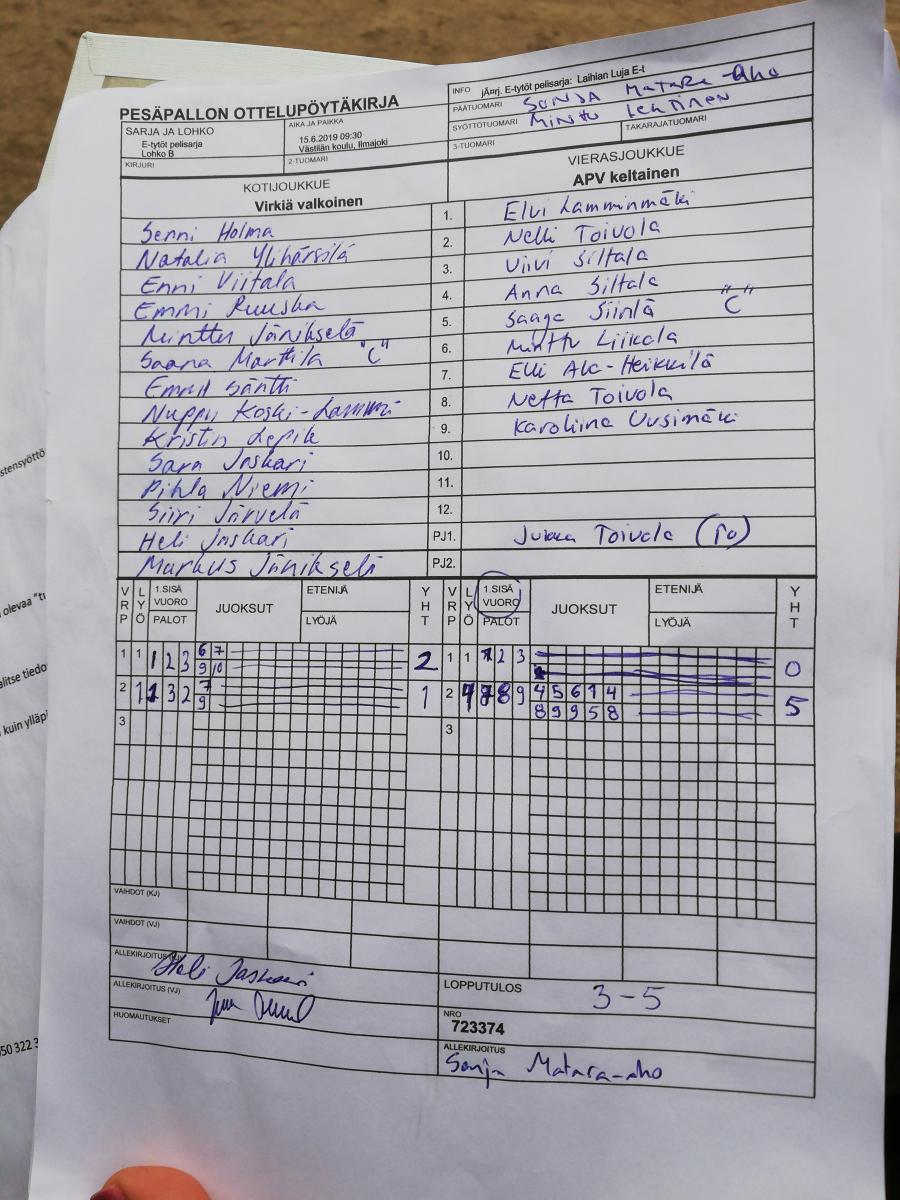 PESÄPALLON OTTELUPÖYTÄKIRJA
INFO jÄrrj. E-tytöt pelisarja: Laihian Luja E-t
PÄÄTUOMARI SONJA MATARA-aho
SYÖTTÖTUOMARI MINTTU LEHTINEN
TAKARAJATUOMARI
3-TUOMARI
SARJA JA LOHKO
E-tytöt pelisarja
Lohko B
KIRJURI
AIKA JA PAIKKA
15.6.2019 09:30
Västilän koulu, Ilmajoki
2-TUOMARI
KOTIJOUKKUE
Virkiä valkoinen
VIERASJOUKKUE
APV keltainen
Senni Holma 1. Elvi Lamminmäki
Natalia Ylihärsilä 2. Nelli Toivola
Enni Viitala 3. Viivi Siltala
Emmi Ruuska 4. Anna Siltala
Minttu Jänikselä 5. Saaga Siintä "C"
Saana Marttila "C" 6. Minttu Liikala
Emmil Säntti 7. Elli Ala-Heikkilä
Nuppu Koski-Lammi 8. Netta Toivola
Kristin Lepik 9. Karoliina Uusimäki
Sara Jaskari 10.
Pihla Niemi 11.
Siiri Järvelä 12.
Heli Jaskari PJ1. Jukka Toivola (To)
Markus Jänikselä PJ2.
VRP LYÖ 1.SISÄ VUORO PALOT JUOKSUT ETENIJÄ LYÖJÄ YHT VRP LYÖ 1.SISÄ VUORO PALOT JUOKSUT ETENIJÄ LYÖJÄ YHT
1 1 1 2 3 6 7 2 1 1 1 2 3 0
9 10
2 1 1 3 2 7 1 2 4 7 8 9 4 5 6 1 4 5
9 8 9 9 5 8
3 3
VAIHDOT (KJ)
VAIHDOT (VJ)
ALLEKIRJOITUS (KJ) Heli Jaskari
ALLEKIRJOITUS (VJ)
HUOMAUTUKSET
LOPPUTULOS 3-5
NRO
723374
ALLEKIRJOITUS
Sonja Matara-aho
stensyöttö
olevaa "tu
alitse tiedo
kuin ylläpi
050 322 3